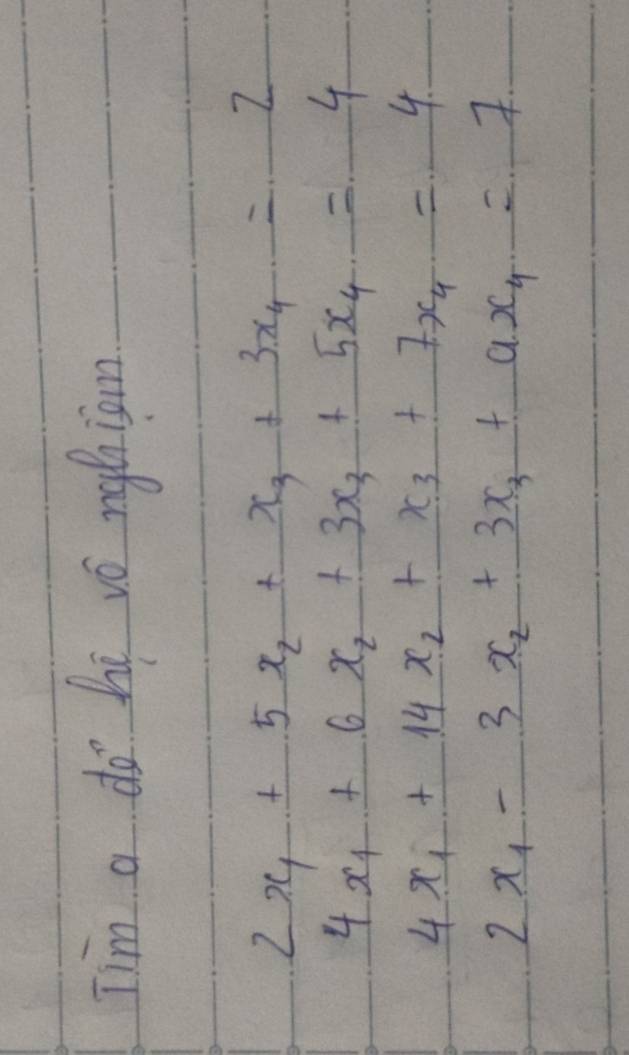 Tìm a để hệ vô nghiệm
2x₁ + 5x₂ + x₃ + 3x₄ = 2
4x₁ + 6x₂ + 3x₃ + 5x₄ = 4
4x₁ + 14x₂ + x₃ + 7x₄ = 4
2x₁ - 3x₂ + 3x₃ + ax₄ = 7